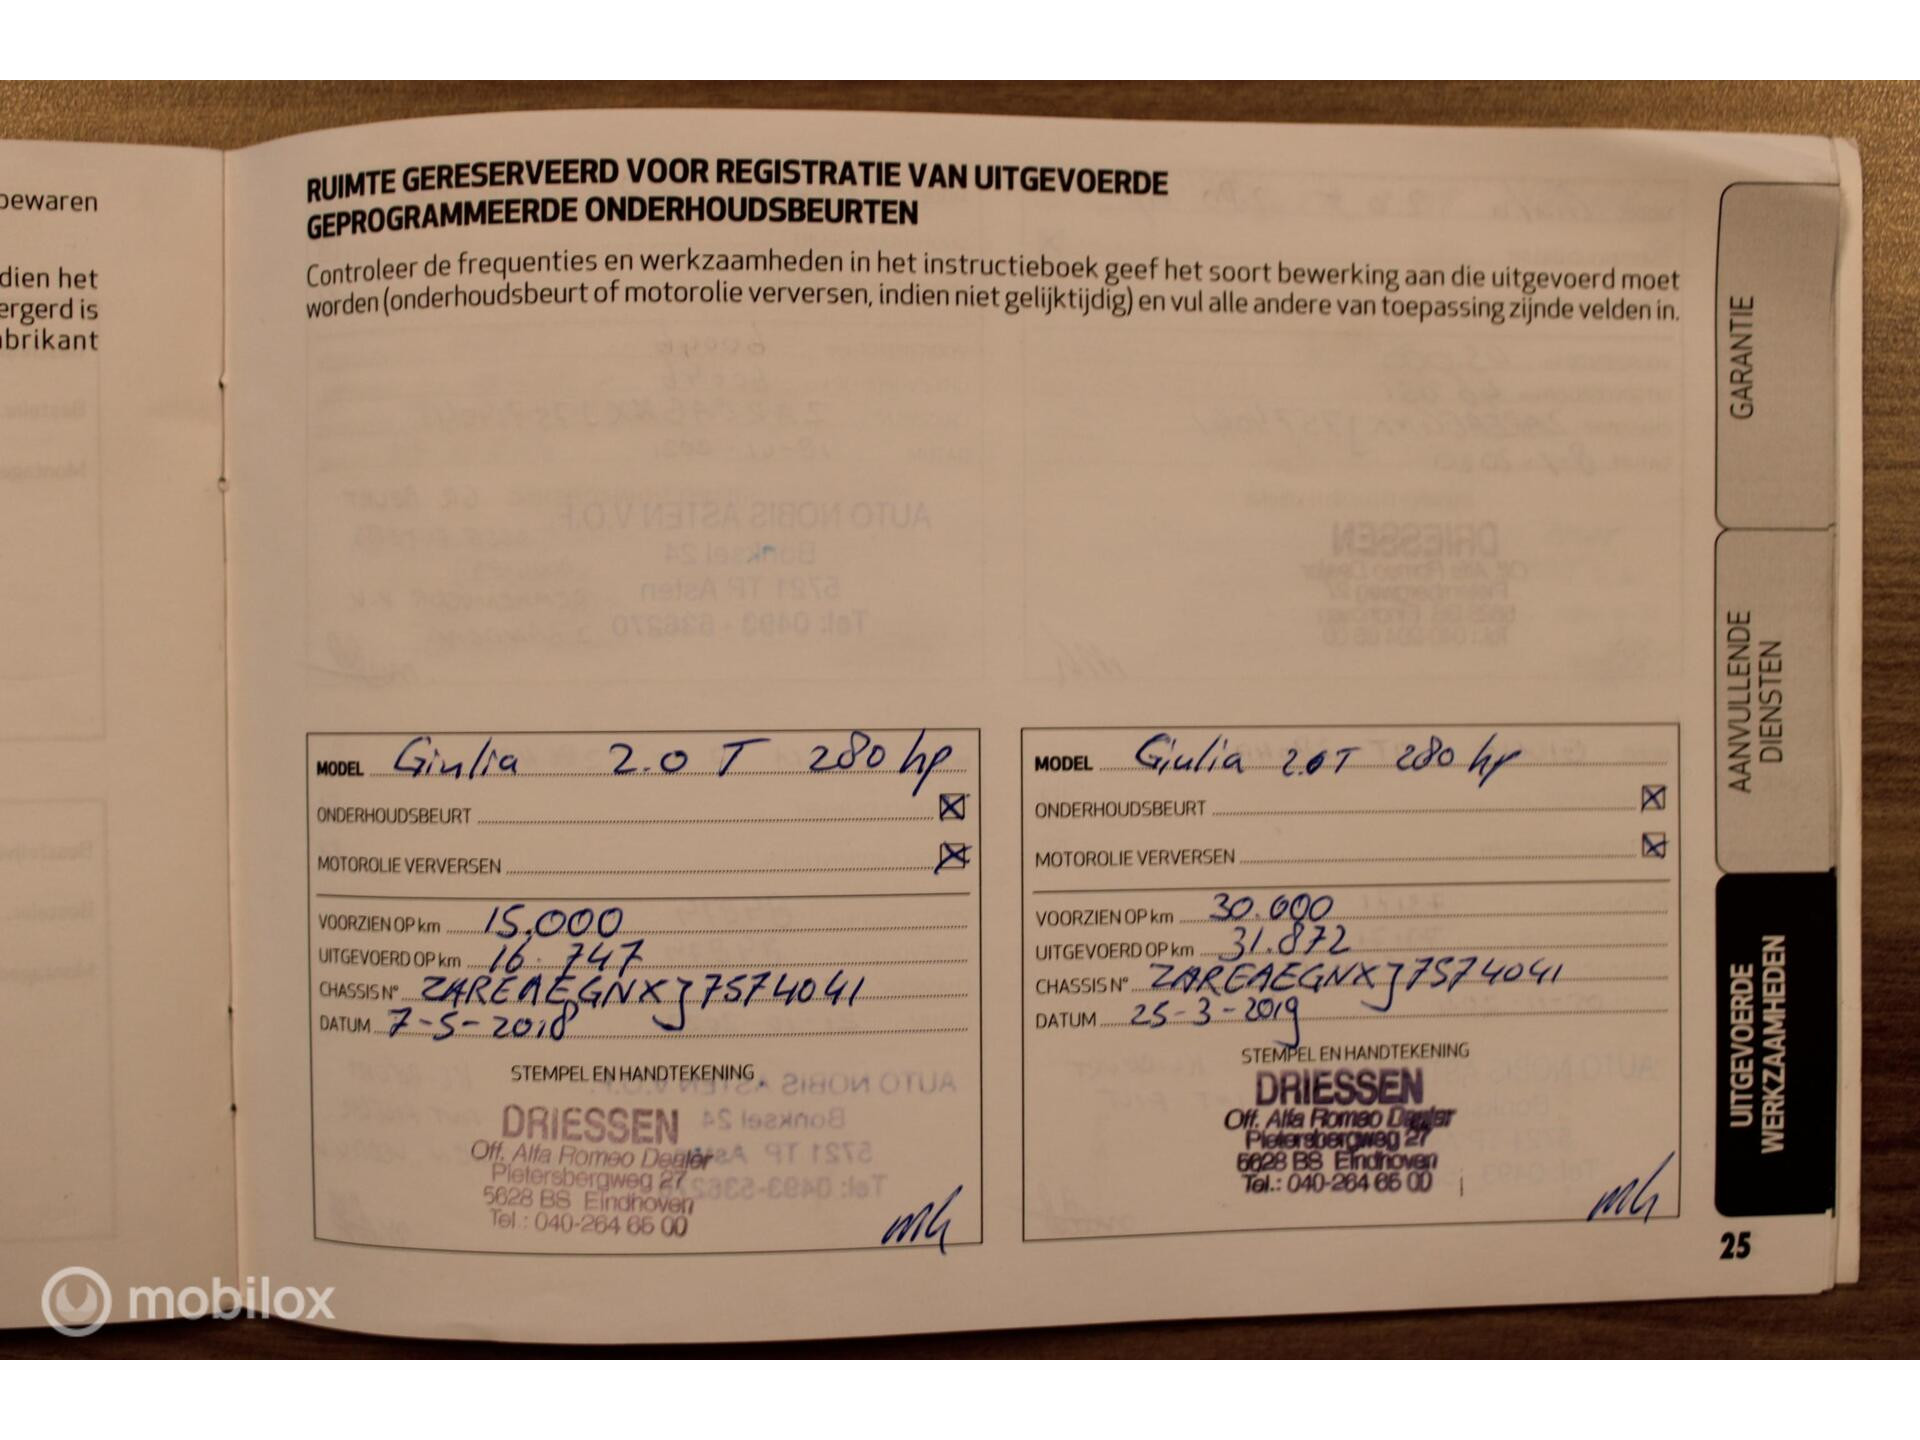 bewaren
dien het
ergerd is
abrikant
RUIMTE GERESERVEERD VOOR REGISTRATIE VAN UITGEVOERDE
GEPROGRAMMEERDE ONDERHOUDSBEURTEN
Controleer de frequenties en werkzaamheden in het instructieboek geef het soort bewerking aan die uitgevoerd moet
worden (onderhoudsbeurt of motorolie verversen, indien niet gelijktijdig) en vul alle andere van toepassing zijnde velden in.
MODEL Giulia 2.0 T 280 hp
ONDERHOUDSBEURT
MOTOROLIE VERVERSEN
VOORZIEN OP km 15.000
UITGEVOERD OP km 16.747
CHASSIS N° ZAREAEGNXJ7574041
DATUM 7-5-2018
STEMPEL EN HANDTEKENING
DRIESSEN
Off. Alfa Romeo Dealer
Pietersbergweg 27
5628 BS Eindhoven
Tel.: 040-264 66 00
MODEL Giulia 2.0T 280 hp
ONDERHOUDSBEURT
MOTOROLIE VERVERSEN
VOORZIEN OP km 30.000
UITGEVOERD OP km 31.872
CHASSIS N° ZAREAEGNXJ7574041
DATUM 25-3-2019
STEMPEL EN HANDTEKENING
DRIESSEN
Off. Alfa Romeo Dealer
Pietersbergweg 27
5628 BS Eindhoven
Tel.: 040-264 66 00
GARANTIE
AANVULLENDE
DIENSTEN
UITGEVOERDE
WERKZAAMHEDEN
25
mobilox